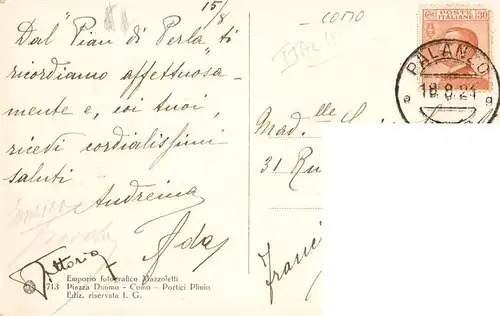 15/8
- COMO
ITALIE
Dal "Pian di Perla" ti
ricordiamo affettuosa-
mente e, coi tuoi,
ricevi cordialissimi
saluti
Andreina
Ada
Vittoria
POSTE
ITALIANE
PALANZO
18.8.24
Mad.lle
31 Ru
Franci
Emporio fotografico Mazzoletti
713 Piazza Duomo - Como - Portici Plinio
Ediz. riservata I. G.